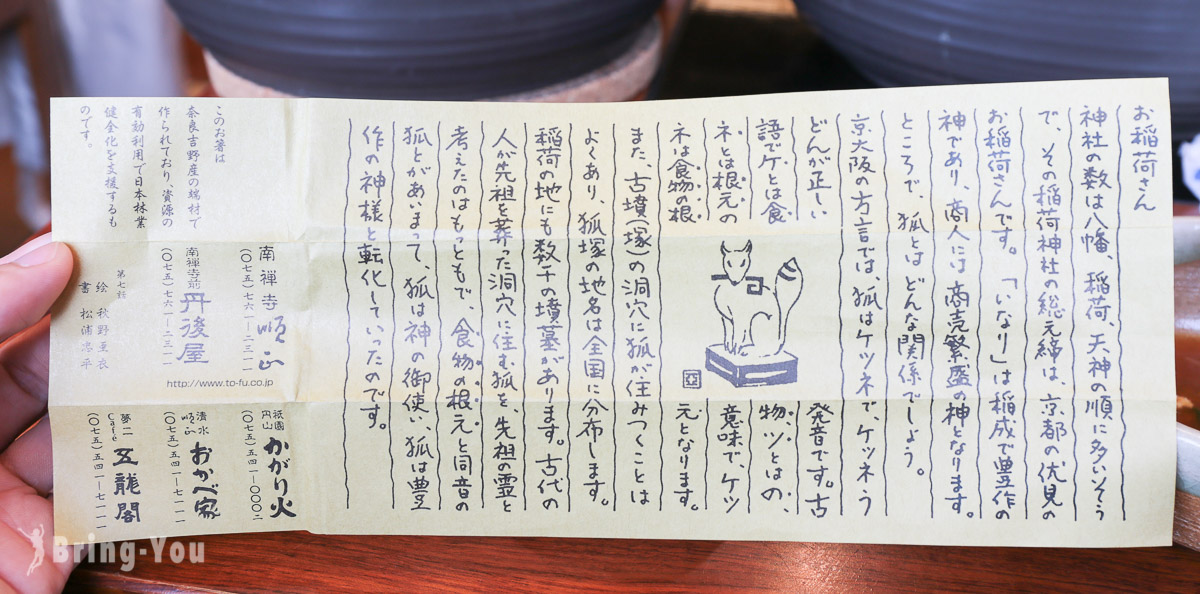 お稲荷さん
神社の数は八幡、稲荷、天神の順に多いそう
で、その稲荷神社の総元締は、京都の伏見の
お稲荷さんです。「いなり」は稲成で豊作の
神であり、商人には商売繁盛の神となります。
ところで、狐とはどんな関係でしょう。
京大阪の方言では、狐はケツネで、ケツネう
どんが正しい発音です。古
語でケとは食物、ツとはの、
ネとは根元の意味で、ケツ
ネは食物の根元となります。
また、古墳(塚)の洞穴に狐が住みつくことは
よくあり、狐塚の地名は全国に分布します。
稲荷の地にも数千の墳墓があります。古代の
人が先祖を葬った洞穴に住む狐を、先祖の霊と
考えたのはもっともで、食物の根元と同音の
狐とがあいまって、狐は神の御使い、狐は豊
作の神様と転化していったのです。
このお箸は
奈良吉野産の端材で
作られており、資源の
有効利用で日本林業
健全化を支援するも
のです。
南禅寺 順正
(〇七五)七六一-二三一一
南禅寺前 丹後屋
(〇七五)七六一-二三一一
http://www.to-fu.co.jp
第七話
絵 秋野亜衣
書 松浦忠平
祇園円山 かがり火
(〇七五)五四一-〇〇〇二
清水順正 おかべ家
(〇七五)五四一-七一一一
夢二Cafe 五龍閣
(〇七五)五四一-七一一一
Bring-You